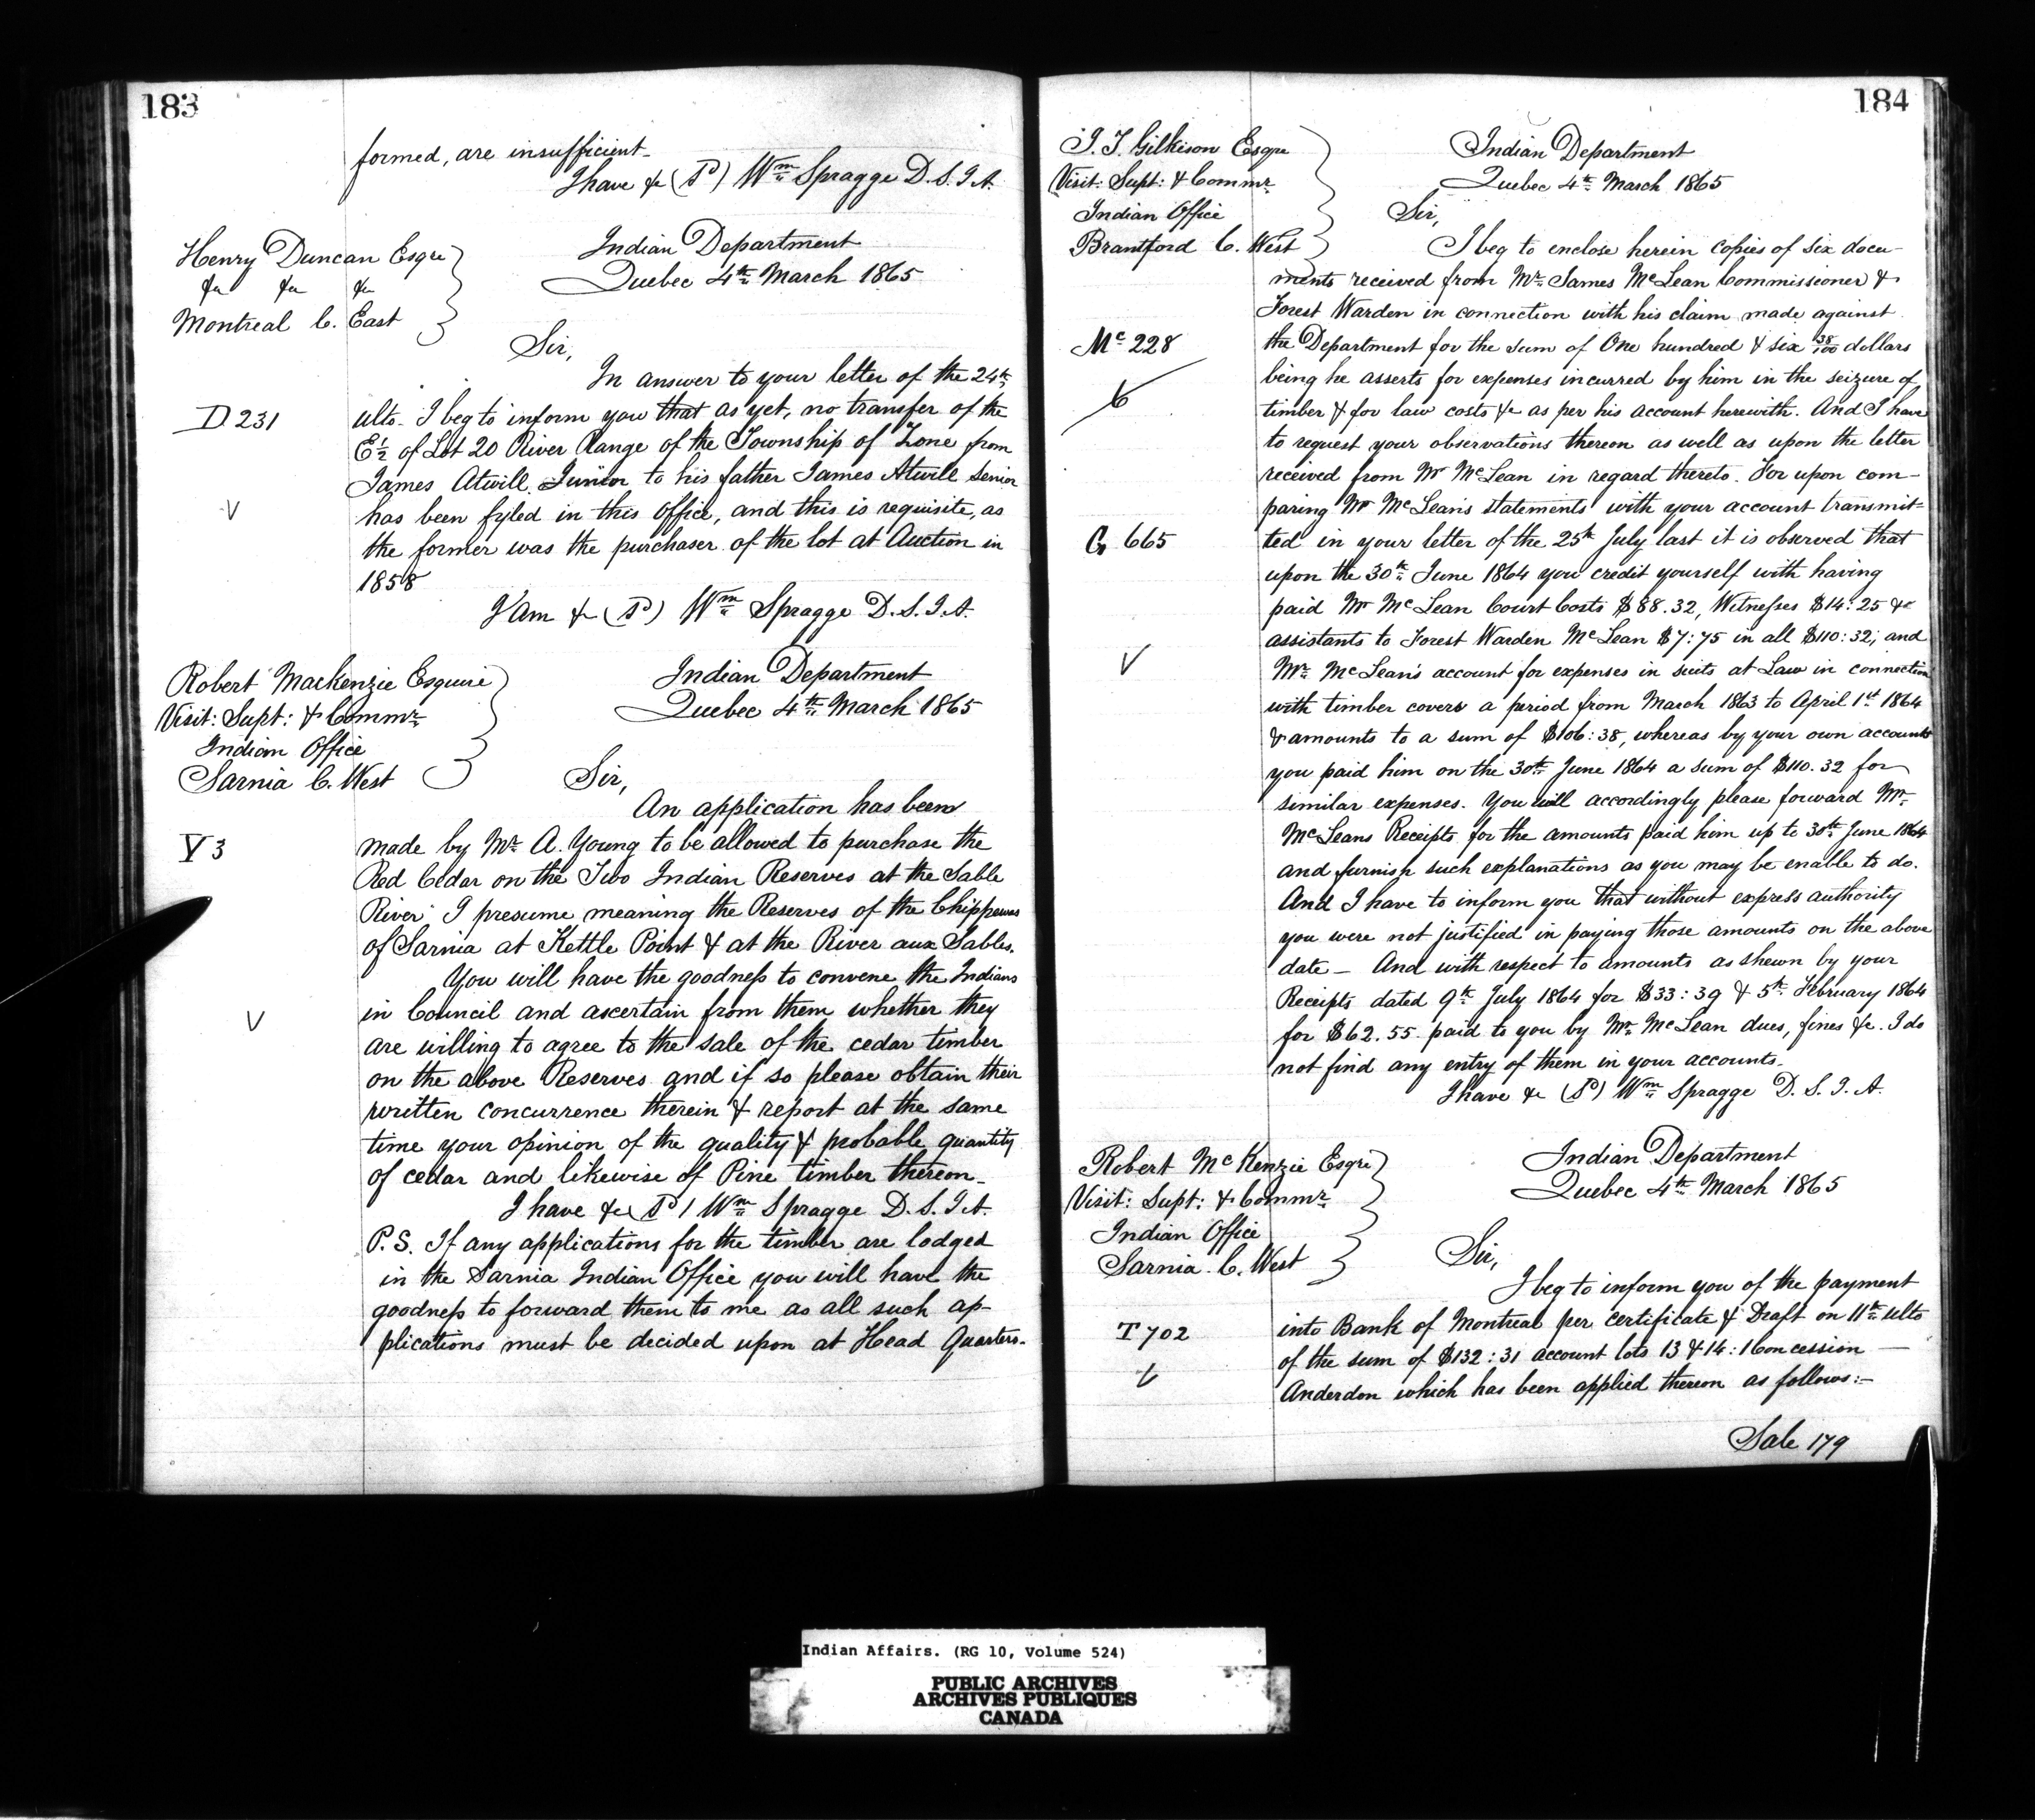 183
formed, are insufficient_
I have &c (Sd) Wm Spragge D.S.I.A.
Henry Duncan Esqre
&c &c &c
Montreal C. East
Indian Department
Quebec 4th March 1865
Sir,
In answer to your letter of the 24th
D 231
ulto. I beg to inform you that as yet, no transfer of the
E½ of Lot 20 River Range of the Township of Zone from
James Atwill Junior to his father James Atwill senior
has been fyled in this Office, and this is requisite, as
the former was the purchaser of the lot at Auction in
1858
I am &c (Sd) Wm Spragge D.S.I.A.
Robert Mackenzie Esquire
Visit: Supt: & Commr
Indian Office
Sarnia C. West
Indian Department
Quebec 4th March 1865
Sir,
An application has been
Y 3
made by Mr A. Young to be allowed to purchase the
Red Cedar on the Two Indian Reserves at the Sable
River. I presume meaning the Reserves of the Chippewas
of Sarnia at Kettle Point & at the River aux Sables.
You will have the goodness to convene the Indians
in Council and ascertain from them whether they
are willing to agree to the sale of the cedar timber
on the above Reserves and if so please obtain their
written concurrence therein & report at the same
time your opinion of the quality & probable quantity
of cedar and likewise of Pine timber thereon_
I have &c (Sd) Wm Spragge D.S.I.A.
P.S. If any applications for the timber are lodged
in the Sarnia Indian Office you will have the
goodness to forward them to me as all such ap-
plications must be decided upon at Head Quarters.
184
J. T. Gilkison Esqre
Visit: Supt: & Commr
Indian Office
Brantford C. West
Indian Department
Quebec 4th March 1865
Sir,
I beg to enclose herein copies of six docu-
ments received from Mr James McLean Commissioner &
Forest Warden in connection with his claim made against
Mc 228
the Department for the sum of One hundred & six 38/100 dollars
being he asserts for expenses incurred by him in the seizure of
6
timber & for law costs &c as per his account herewith. And I have
to request your observations thereon as well as upon the letter
received from Mr McLean in regard thereto. For upon com-
paring Mr McLean's statements with your account transmit=
G 665
ted in your letter of the 25th July last it is observed that
upon the 30th June 1864 you credit yourself with having
paid Mr McLean Court Costs $88.32, Witnesses $14:25 &c
assistants to Forest Warden McLean $7:75 in all $110:32; and
Mr McLean's account for expenses in suits at Law in connection
with timber covers a period from March 1863 to April 1st 1864
& amounts to a sum of $106:38, whereas by your own accounts
you paid him on the 30th June 1864 a sum of $110.32 for
similar expenses. You will accordingly please forward Mr
McLeans Receipts for the amounts paid him up to 30th June 1864
and furnish such explanations as you may be enable to do.
And I have to inform you that without express authority
you were not justified in paying those amounts on the above
date_ And with respect to amounts as shewn by your
Receipts dated 9th July 1864 for $33:39 & 5th February 1864
for $62.55 paid to you by Mr McLean dues, fines &c. I do
not find any entry of them in your accounts_
I have &c (Sd) Wm Spragge D.S.I.A.
Robert McKenzie Esqre
Visit: Supt: & Commr
Indian Office
Sarnia C. West
Indian Department
Quebec 4th March 1865
Sir,
I beg to inform you of the payment
T 702
into Bank of Montreal per certificate & Draft on 11th ulto
of the sum of $132:31 account lots 13 & 14:1 Concession —
Anderdon which has been applied thereon as follows:—
Sale 179
Indian Affairs. (RG 10, Volume 524)
PUBLIC ARCHIVES
ARCHIVES PUBLIQUES
CANADA